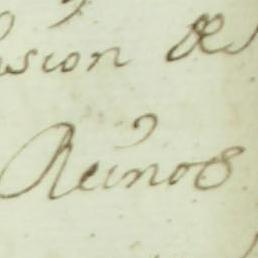 usion de
Reinos